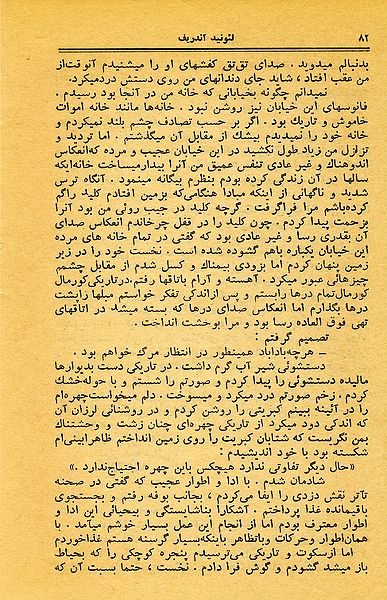 ۸۲ لئونید آندریف
بدنبالم میدوید. صدای تق‌تق کفشهای او را میشنیدم آنوقت‌از
من عقب افتاد، شاید جای دندانهای من روی دستش دردمیکرد.
نمیدانم چگونه بخیابانی که خانه من در آنجا بود رسیدم.
فانوسهای این خیابان نیز روشن نبود. خانه‌ها مانند خانه اموات
خاموش و تاریك بود. اگر بر حسب تصادف چشم بلند نمیکردم و
خانه خود را نمیدیدم بیشك از مقابل آن میگذشتم. اما تردید و
تزلزل من زیاد طول نکشید در این خیابان عجیب و مرده که‌انعکاس
اندوهناك و غیر عادی تنفس عمیق من آنرا بیدارمیساخت خانه‌ایکه
سالها در آن زندگی کرده بودم بنظرم بیگانه مینمود. آنگاه ترس
شدید و ناگهانی از اینکه مبادا هنگامی‌که بزمین افتادم کلید راگم
کرده‌باشم مرا فراگرفت. گرچه کلید در جیب روئی من بود آنرا
بزحمت پیدا کردم. چون کلید را در قفل چرخاندم انعکاس صدای
آن بقدری رسا و غیر عادی بود که گفتی در تمام خانه های مرده
این خیابان یکباره باهم گشوده شده است. نخست خود را در زیر
زمین پنهان کردم اما بزودی بیمناك و کسل شدم از مقابل چشمم
چیزهائی عبور میکرد. آهسته و آرام باتاقها رفتم.درتاریکی‌کورمال
کورمال‌تمام درها رابستم و پس ازاندکی تفکر خواستم مبلها راپشت
درها بگذارم اما انعکاس صدای درها که بسته میشد در اتاقهای
تهی فوق العاده رسا بود و مرا بوحشت انداخت.
تصمیم گرفتم:
ـ هرچه‌بادآباد همینطور در انتظار مرگ خواهم بود.
دستشوئی شیر آب گرم داشت. در تاریکی دست بدیوارها
مالیده دستشوئی را پیدا کردم و صورتم را شستم و با حوله‌خشك
کردم، زخم صورتم درد میکرد و میسوخت. دلم میخواست‌چهره‌ام
را در آئینه ببینم کبریتی را روشن کردم و در روشنائی لرزان آن
که اندکی دود میکرد از تاریکی چهره‌ای چنان زشت و وحشتناك
بمن نگریست که شتابان کبریت را روی زمین انداختم ظاهرابینی‌ام
شکسته بود با خود اندیشیدم:
«حال دیگر تفاوتی ندارد هیچکس باین چهره احتیاج‌ندارد.»
شادمان شدم. با ادا و اطوار عجیب که گفتی در صحنه
تآتر نقش دزدی را ایفا می‌کردم، بجانب بوفه رفتم و بجستجوی
باقیمانده غذا پرداختم. آشکارا بناشایستگی و بیجائی این ادا و
اطوار معترف بودم اما از انجام این عمل بسیار خوشم میآمد. با
همان‌اطوار وحرکات وباتظاهر باینکه‌بسیار گرسنه هستم غذاخوردم
اما ازسکوت و تاریکی می‌ترسیدم پنجره کوچکی را که بحیاط
باز میشد گشودم و گوش فرا دادم. نخست، حتما بسبت آن که